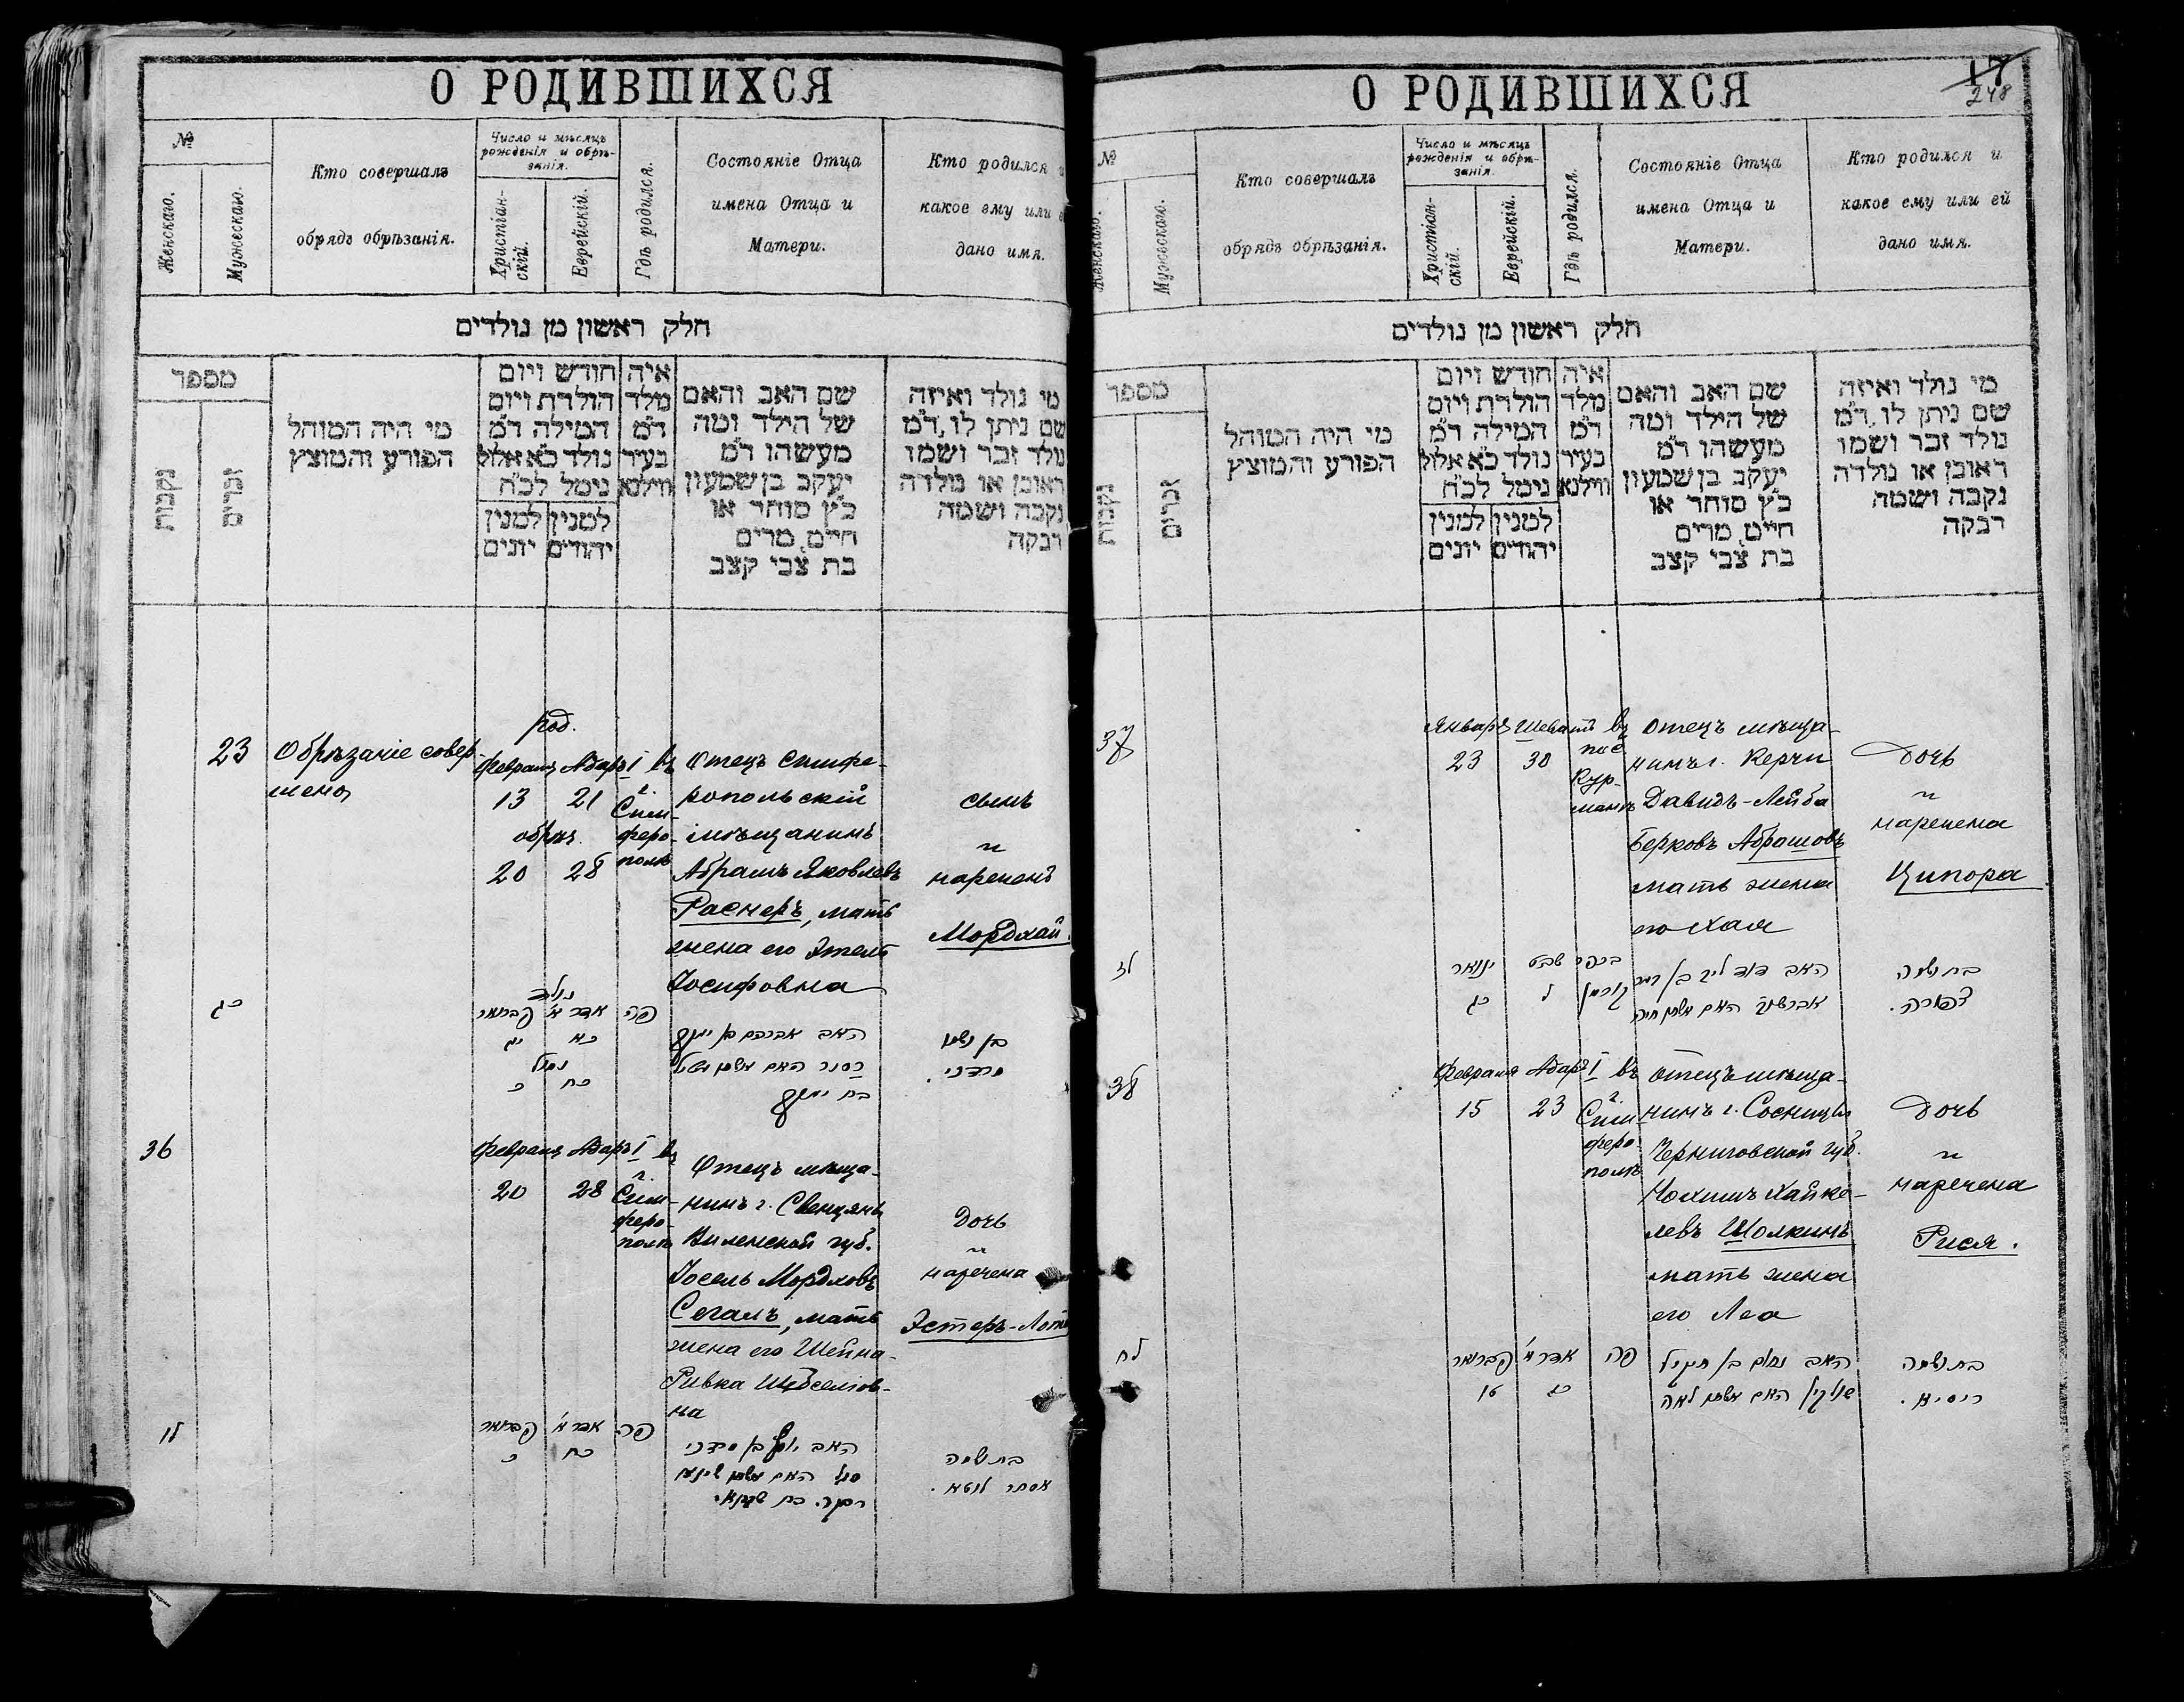 О РОДИВШИХСЯ
№
Женскаго.
Мужескаго.
Кто совершалъ
обрядъ обрѣзанія.
Число и мѣсяцъ
рожденія и обрѣ-
занія.
Христіан-
скій.
Еврейскій.
Гдѣ родился.
Состояніе Отца
имена Отца и
Матери.
Кто родился и
какое ему или
дано имя.
חלק ראשון מן נולדים
מספר
נקבות
זכרים
מי היה המוהל
הפורע והמוצץ
חודש ויום
הולדת ויום
המילה ד״מ
נולד כ״א אלול
נימל לכ״ח
למנין למנין
יהודים יונים
איה
מלד
ד״מ
בעיר
ווילנא
שם האב והאם
של הילד ומה
מעשהו ד״מ
יעקב בן שמעון
כ״ץ סוחר או
חיים, מרים
בת צבי קצב
מי נולד ואיזה
שם ניתן לו, ד״מ
נולד זכר ושמו
ראובן או נולדה
נקבה ושמה
רבקה
23
Обрѣзаніе совер-
шено
род.
Февраля Адаръ I
13 21
обрѣз.
20 28
въ
г.
Сим-
феро-
полѣ
Отецъ симфе-
ропольскій
мѣщанинъ
Абрамъ Яковлевъ
Раснеръ, мать
жена его Этель
Іосифовна
сынъ
и
нареченъ
Мордхай.
כג
נולד
פברואר אדר א׳
יג כא
נימול
כ כח
פה
האב אברהם בן יוסף
רסנר האם אשתו עטיל
בת יוסף
בן ושמו
מרדכי.
36
Февраля Адаръ I
20 28
въ
г.
Сим-
феро-
полѣ
Отецъ мѣща-
нинъ г. Свенцянъ
Виленской губ.
Іосель Мордховъ
Сегалъ, мать
жена его Шейна-
Ривка Шубселіов-
на
Дочь
и
наречена
Эстеръ-Лотт
לו
פברואר אדר א׳
כ כח
פה
האב יוסף בן מרדכי
סגל האם אשתו שיינא
רבקה בת
בת ושמה
אסתר לוטא.
О РОДИВШИХСЯ
17
248
№
Женскаго.
Мужескаго.
Кто совершалъ
обрядъ обрѣзанія.
Число и мѣсяцъ
рожденія и обрѣ-
занія.
Христіан-
скій.
Еврейскій.
Гдѣ родился.
Состояніе Отца
имена Отца и
Матери.
Кто родился и
какое ему или ей
дано имя.
חלק ראשון מן נולדים
מספר
נקבות
זכרים
מי היה המוהל
הפורע והמוצץ
חודש ויום
הולדת ויום
המילה ד״מ
נולד כ״א אלול
נימל לכ״ח
למנין למנין
יהודים יונים
איה
מלד
ד״מ
בעיר
ווילנא
שם האב והאם
של הילד ומה
מעשהו ד״מ
יעקב בן שמעון
כ״ץ סוחר או
חיים, מרים
בת צבי קצב
מי נולד ואיזה
שם ניתן לו, ד״מ
נולד זכר ושמו
ראובן או נולדה
נקבה ושמה
רבקה
37
Января Шеватъ
23 30
въ
пос.
Кур-
манъ
Отецъ мѣща-
нинъ г. Керчи
Давидъ-Лейба
Берковъ Абрашовъ
мать жена
его Хая
Дочь
и
наречена
Ципора
לז
ינואר שבט
כג ל
בכפר
קורמן
האב דוד ליב בן
האם אשתו חיה
בת ושמה
צפורה.
38
Февраля Адаръ I
15 23
въ
г.
Сим-
феро-
полѣ
Отецъ мѣща-
нинъ г. Сосницы
Черниговской губ.
Нохимъ Хайке-
левъ Шолкинъ
мать жена
его Леа
Дочь
и
наречена
Рися.
לח
פברואר אדר א׳
טו כג
פה
האב נחום בן חייקיל
שולקין האם אשתו לאה
בת ושמה
ריסיא.